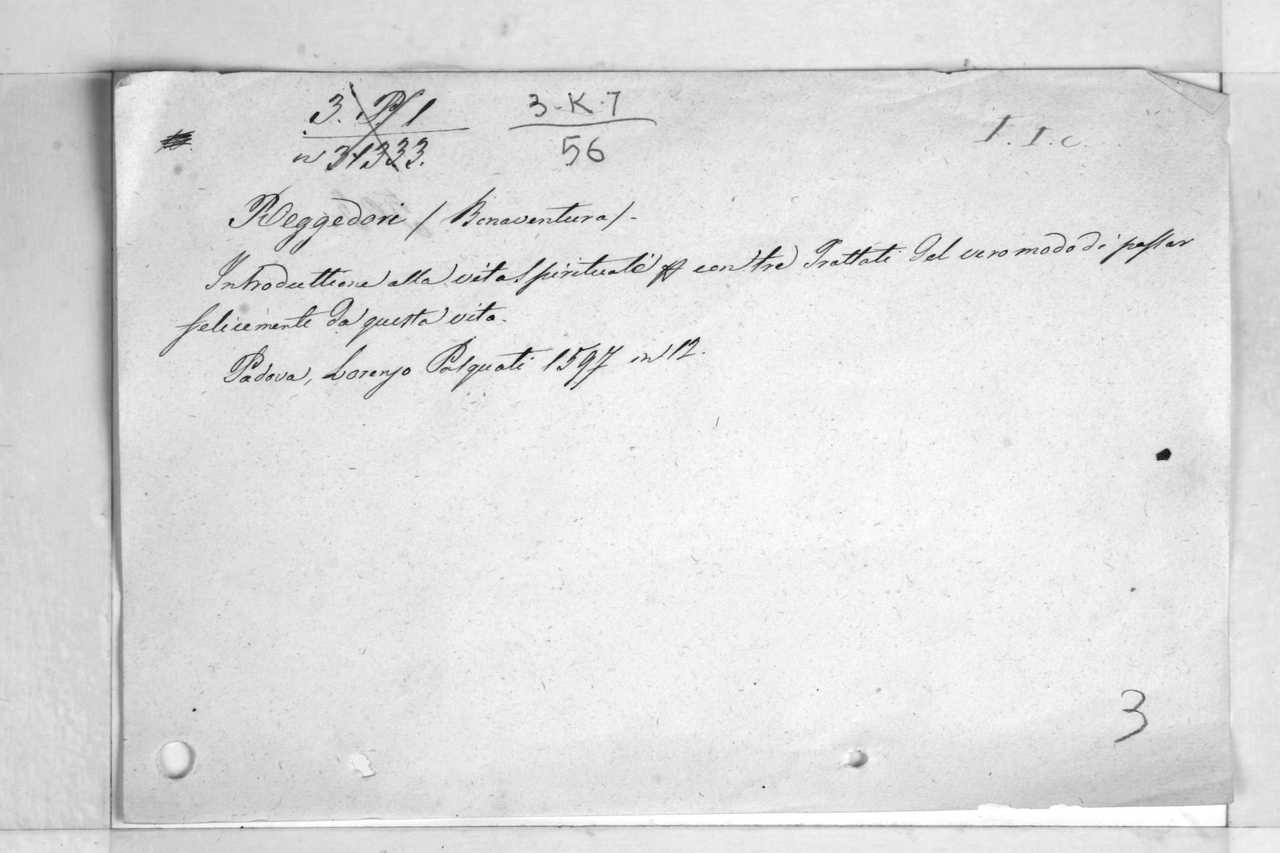 3. P/1 3-K-7
n 31333. 56
I. I. c.
Reggedori / Bonaventura / -
Introduttione alla vita spirituale con tre Trattati del vero modo di passar
felicemente da questa vita.
Padova, Lorenzo Pasquati 1597 in 12.
3